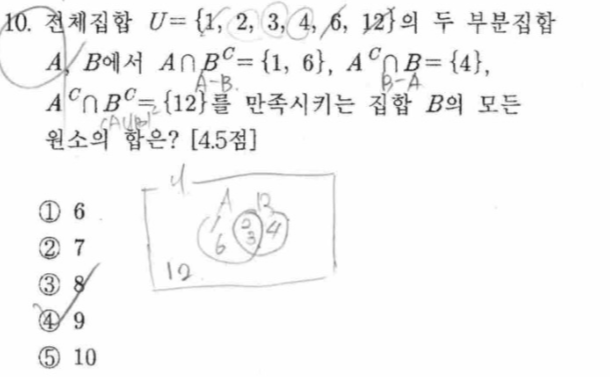 10. 전체집합 U = {1, 2, 3, 4, 6, 12}의 두 부분집합
A, B에서 A∩B^C = {1, 6}, A^C∩B = {4},
A-B
B-A
A^C∩B^C = {12}를 만족시키는 집합 B의 모든
원소의 합은? [4.5점]
① 6
② 7
③ 8
④ 9
⑤ 10
U
A B
1 2 4
6 3
12